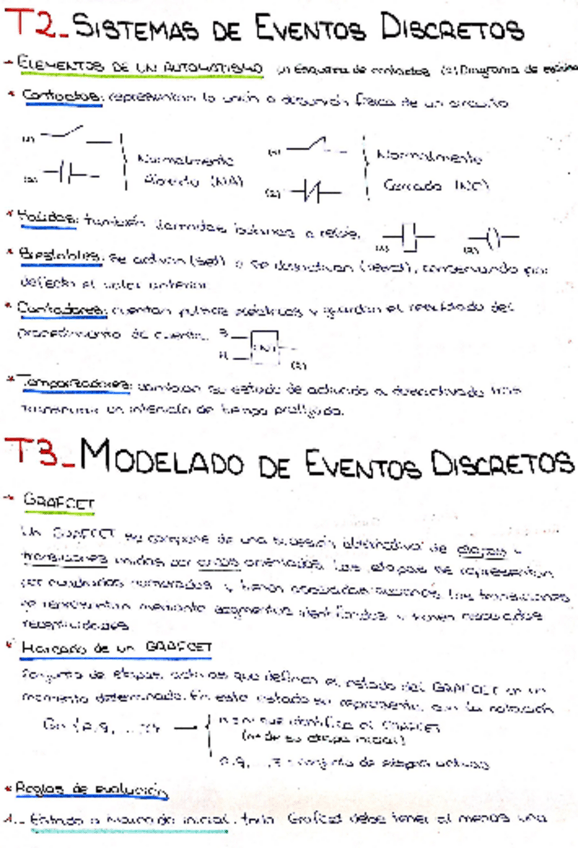 T2_ SISTEMAS DE EVENTOS DISCRETOS
→ ELEMENTOS DE UN AUTOMATISMO (1) Esquema de contactos (2) Diagrama de
* Contactos: representan la unión o desunión física de un circuito
(1) (1)
Normalmente Normalmente
(2) Abierto (NA) (2) Cerrado (NC)
* Salidas: también llamadas bobinas o relés. (1) (2)
* Biestables: se activan (set) o se desactivan (reset), conservando por
defecto el valor anterior
* Contadores: cuentan pulsos eléctricos y guardan el resultado del
procedimiento de cuenta.
* Temporizadores: cambian su estado de activado a desactivado tras
transcurrir un intervalo de tiempo prefijado.
T3_ MODELADO DE EVENTOS DISCRETOS
→ GRAFCET
Un GRAFCET se compone de una sucesión alternativa de etapas y
transiciones unidas por arcos orientados. Las etapas se representan
por cuadrados numerados y tienen asociadas acciones. Las transiciones
se representan mediante segmentos identificados y tienen asociadas
receptividades
* Marcado de un GRAFCET
Conjunto de etapas activas que definen el estado del GRAFCET en un
momento determinado. Este estado se representa con la notación
que identifica el GRAFCET
(nº de su etapa inicial)
conjunto de etapas activas
* Reglas de evolución
1._ Estado o marcado inicial. Todo Grafcet debe tener al menos una